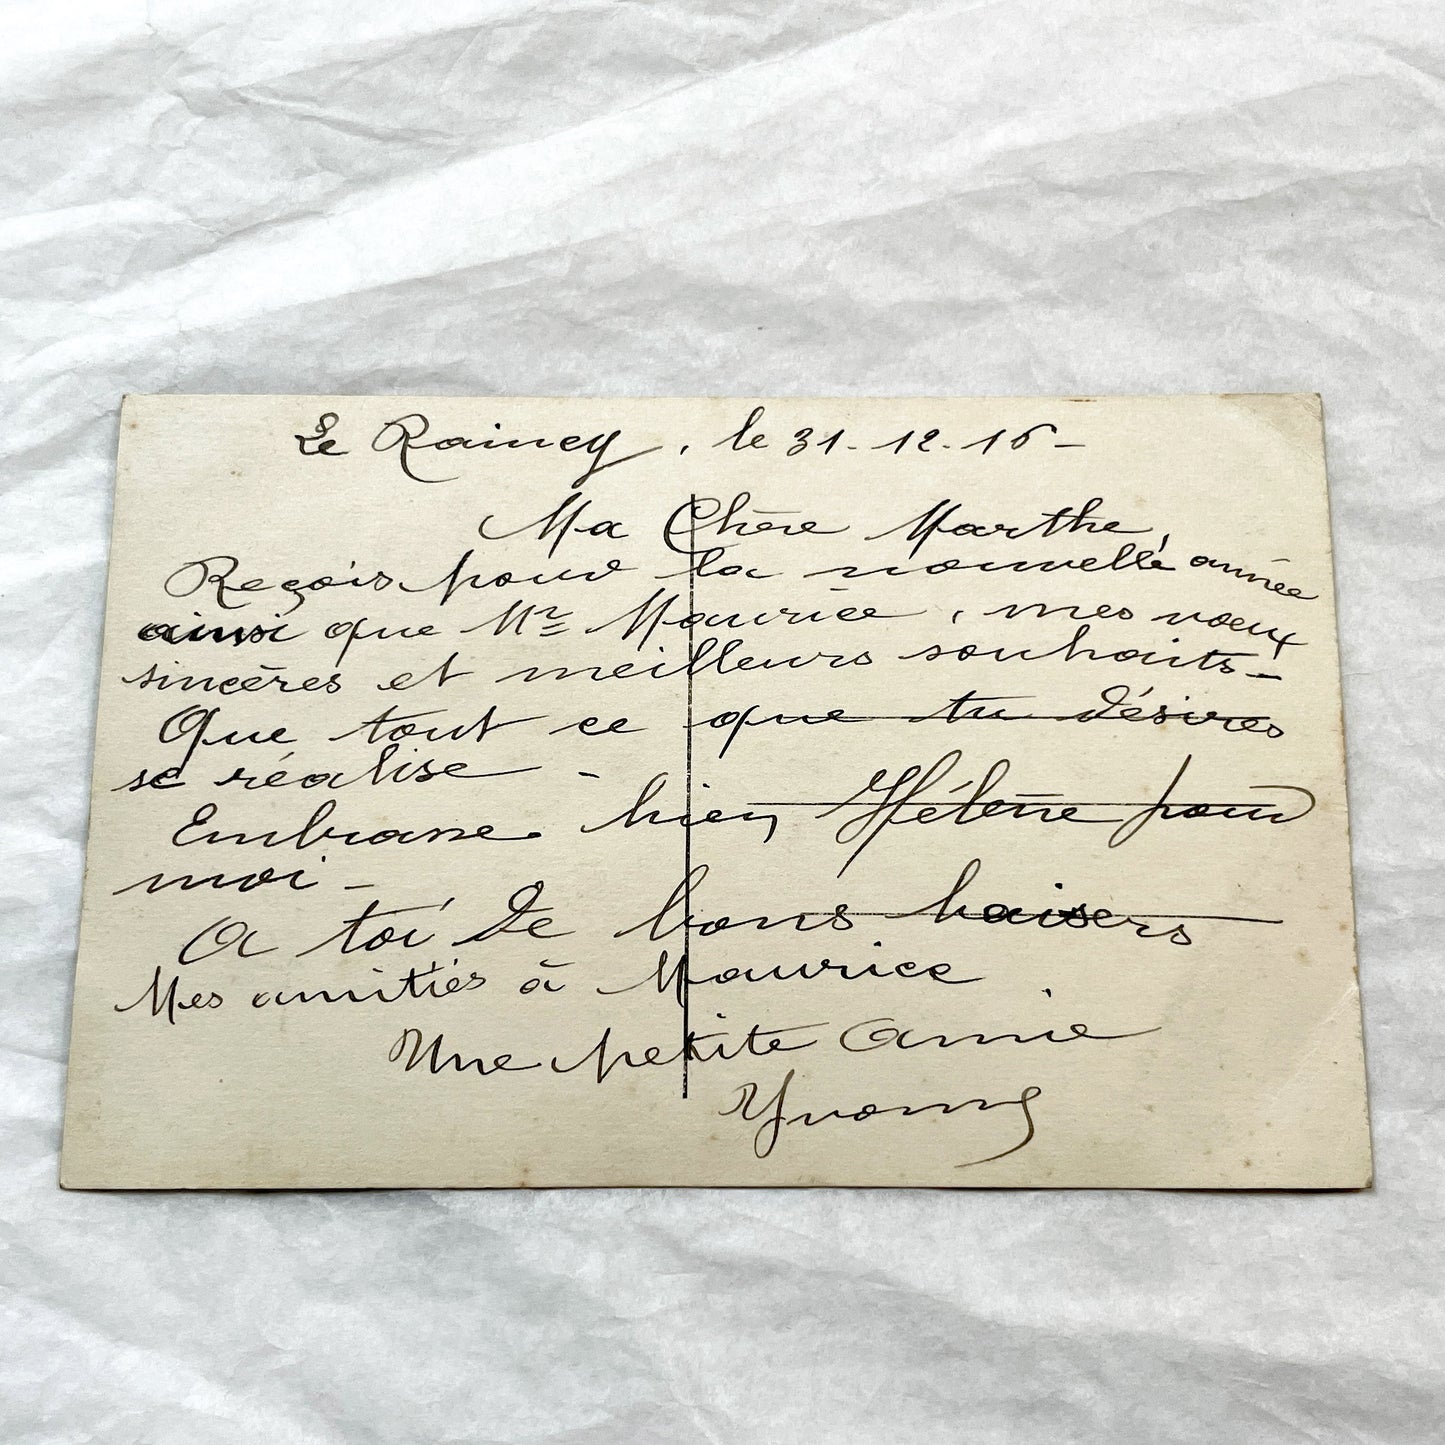 Le Raincy, le 31.12.16 -
Ma Chère Marthe,
Reçois pour la nouvelle année
ainsi que Mr Maurice, mes voeux
sincères et meilleurs souhaits -
Que tout ce que tu désires
se réalise -
Embrasse bien Hélène pour
moi -
A toi de bons baisers
Mes amitiés à Maurice
Une petite Amie
Yvonne